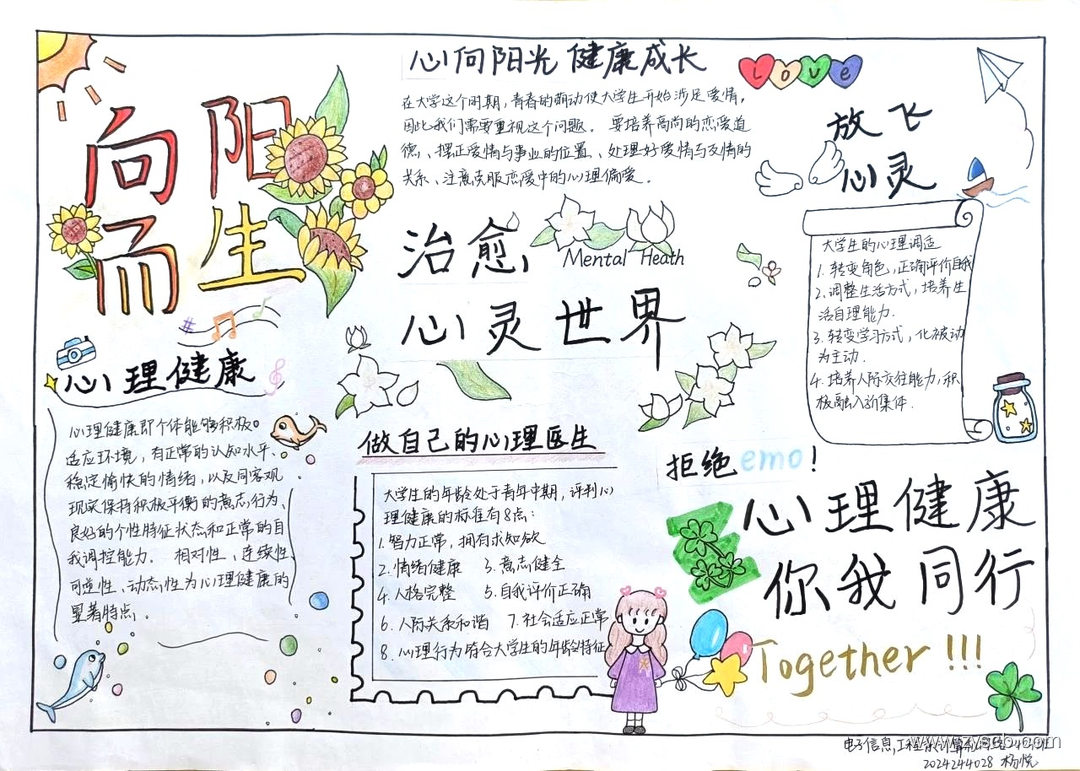 向阳
而生
心向阳光 健康成长
love
在大学这个时期,青春的萌动使大学生开始涉足爱情,
因此我们需要重视这个问题。要培养高尚的恋爱道
德、摆正爱情与事业的位置、处理好爱情与友情的
关系、注意克服恋爱中的心理偏爱。
放飞
心灵
治愈
Mental Heath
心灵世界
大学生的心理调适
1.转变角色,正确评价自我
2.调整生活方式,培养生
活自理能力.
3.转变学习方式,化被动
为主动.
4.培养人际交往能力,积
极融入新集体.
心理健康
心理健康即个体能够积极
适应环境,有正常的认知水平、
稳定愉快的情绪,以及同客观
现实保持积极平衡的意志行为、
良好的个性特征状态和正常的自
我调控能力. 相对性、连续性
可逆性、动态性为心理健康的
显著特点。
做自己的心理医生
大学生的年龄处于青年中期,评判心
理健康的标准有8点:
1.智力正常,拥有求知欲
2.情绪健康 3.意志健全
4.人格完整 5.自我评价正确
6.人际关系和谐 7.社会适应正常
8.心理行为符合大学生的年龄特征
拒绝emo!
心理健康
你我同行
Together !!!
电子信息工程系
2024244028 杨悦